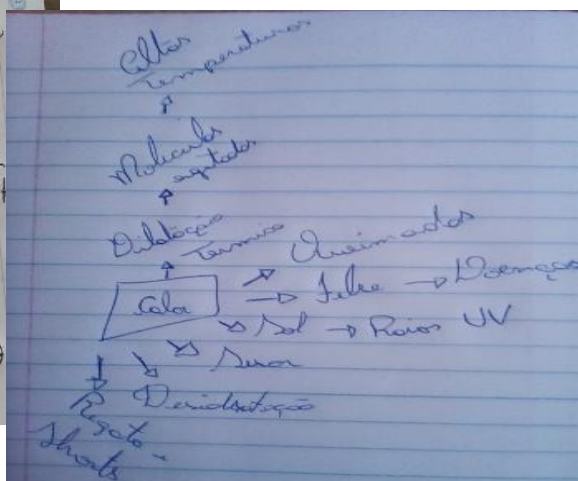 Altas
Temperaturas
↑
Moléculas
agitadas
↑
Dilatação
Térmica
↑
Calor
→ Queimadas
→ Febre → Doenças
→ Sol → Raios UV
→ Suor
→ Desidratação
→ Regata -
Shorts